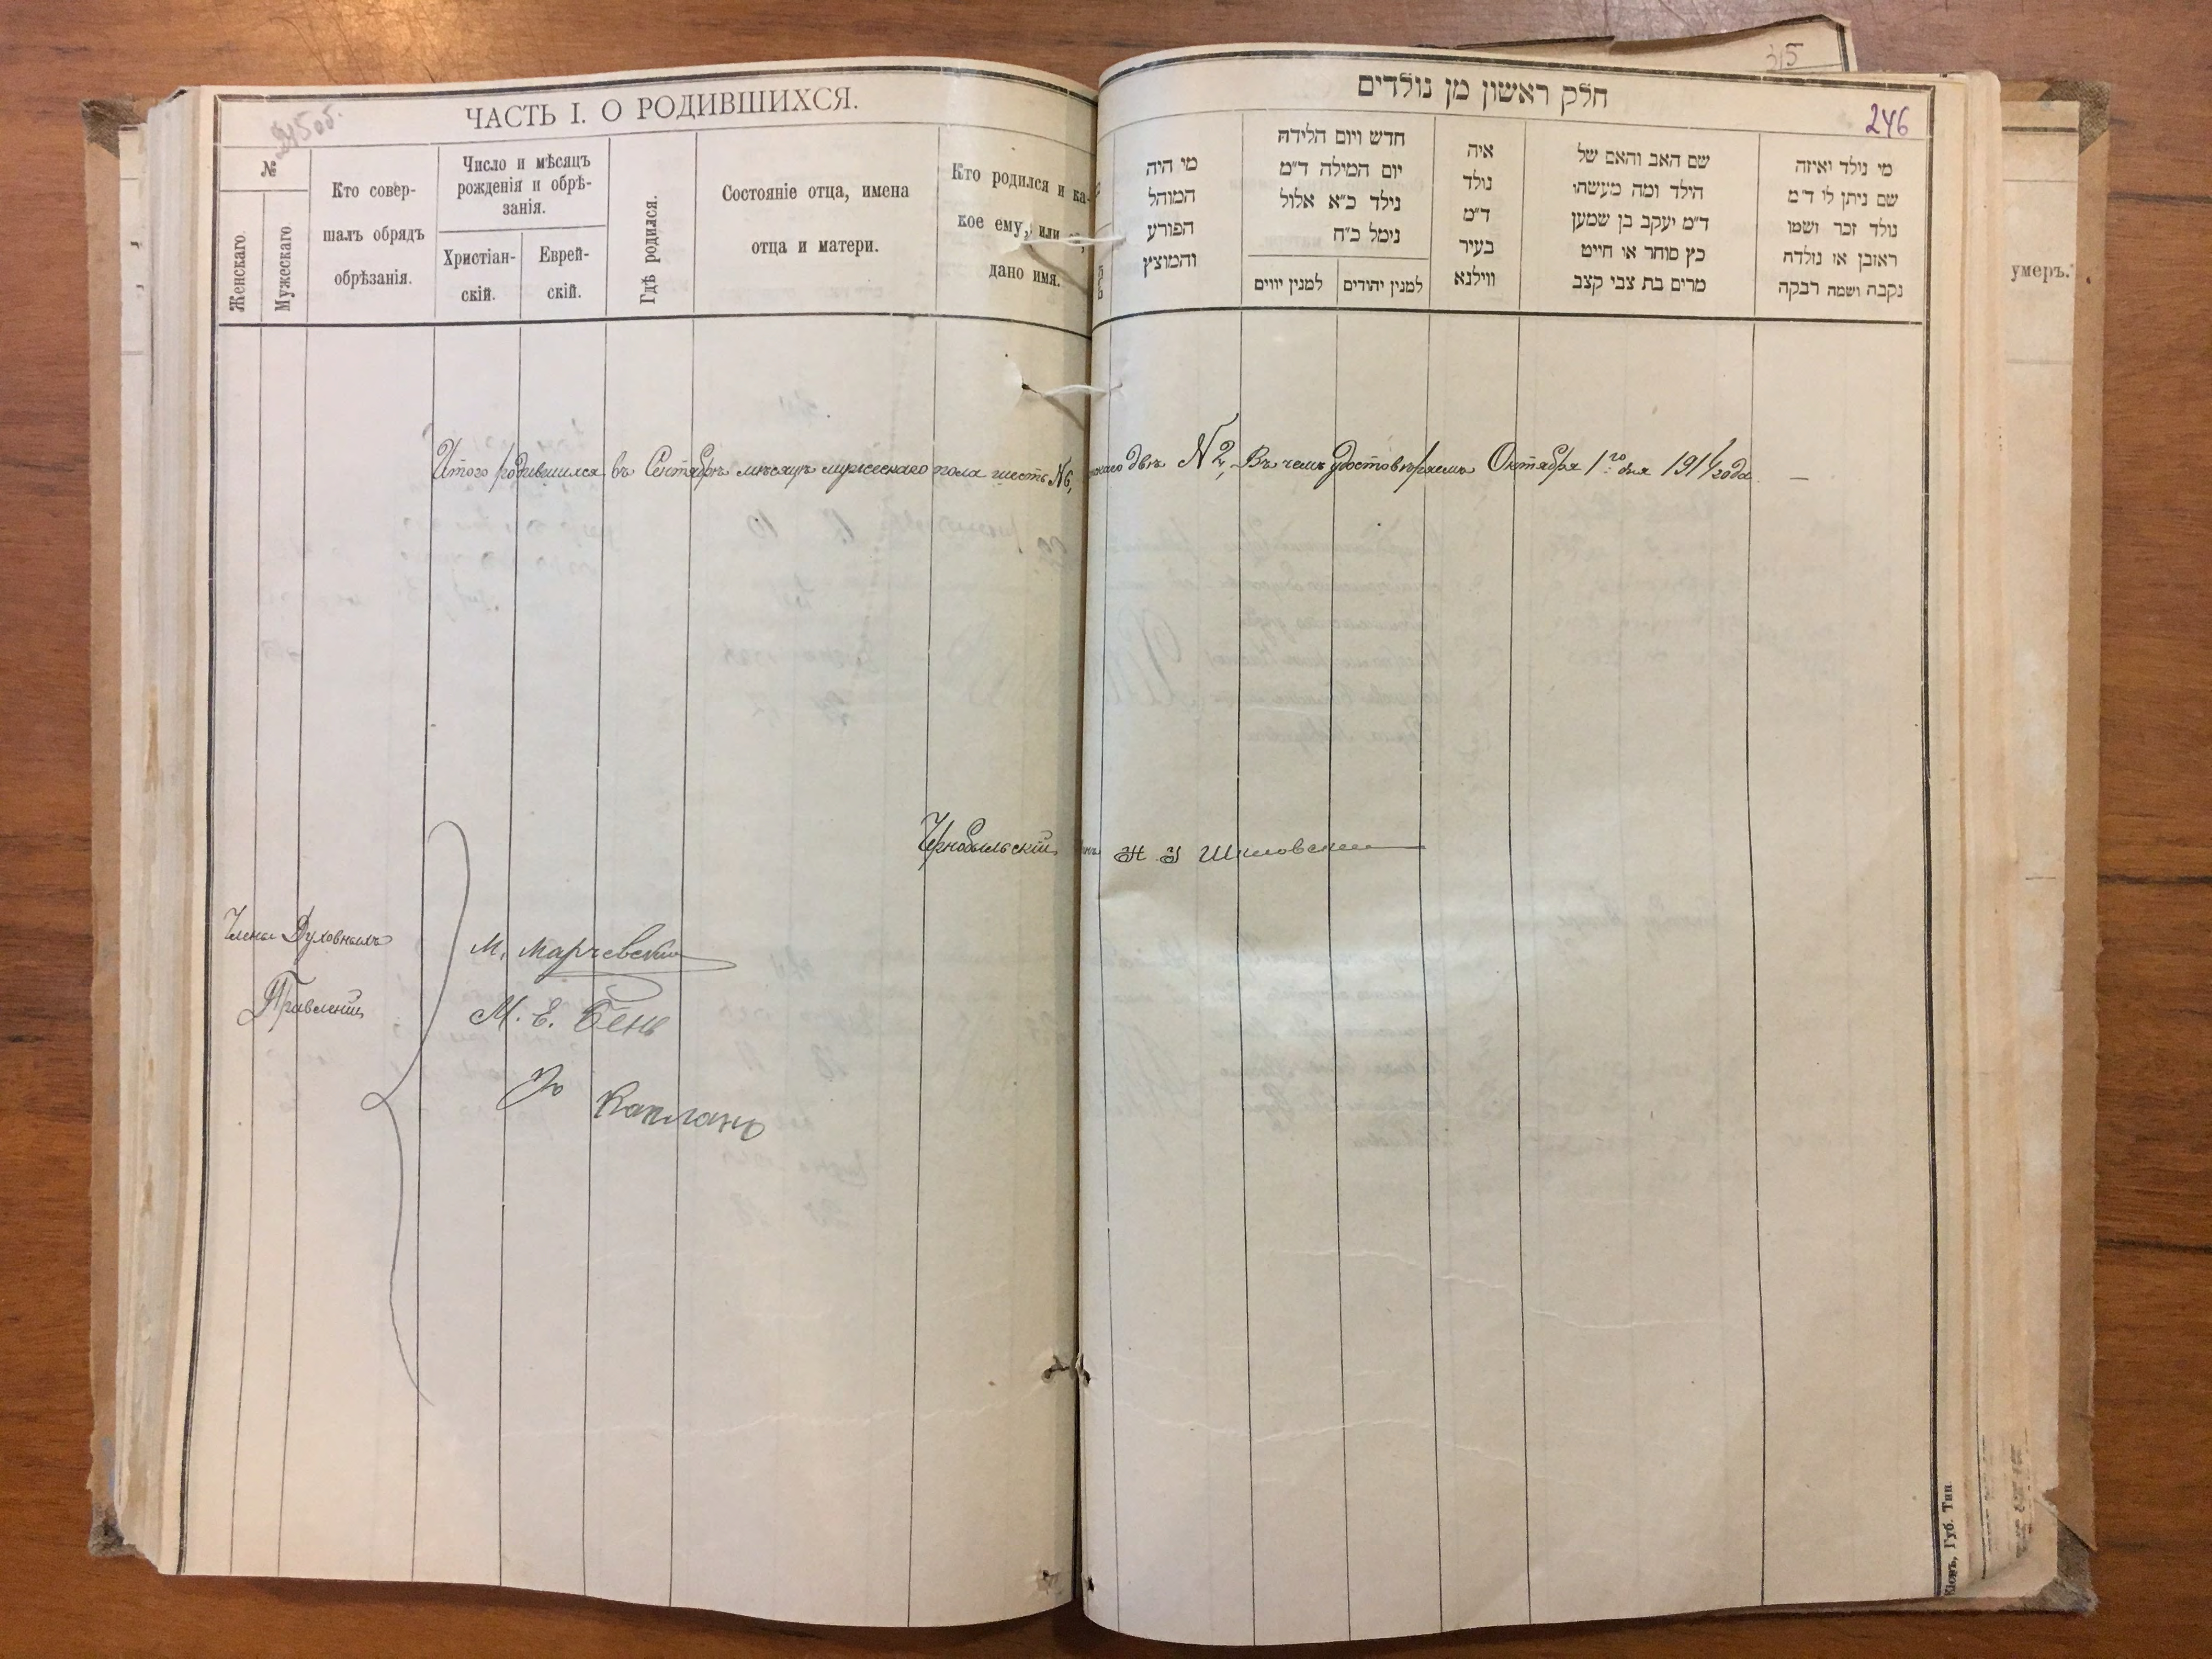 ЧАСТЬ I. О РОДИВШИХСЯ.
№
Женскаго.
Мужескаго.
Кто совер-
шалъ обрядъ
обрѣзанія.
Число и мѣсяцъ
рожденія и обрѣ-
занія.
Христіан-
скій.
Еврей-
скій.
Гдѣ родился.
Состояніе отца, имена
отца и матери.
Кто родился и ка-
кое ему, или
дано имя.
חלק ראשון מן נולדים
315
246
מי היה
המוהל
הפורע
והמוצץ
חדש ויום הלידה
יום המילה ד"מ
נילד כ"א אלול
נימל כ"ח
למנין יווים
למנין יהודים
איה
נולד
ד"מ
בעיר
ווילנא
שם האב והאם של
הילד ומה מעשהו
ד"מ יעקב בן שמען
כץ סוחר או חייט
מרים בת צבי קצב
מי נילד ואיזה
שם ניתן לו ד"מ
נולד זכר ושמו
ראובן או נולדת
נקבה ושמה רבקה
умеръ.
Итого родившихся въ Сентябрѣ мѣсяцѣ мужескаго пола шесть №6, двѣ №2, Въ чемъ удостовѣряемъ Октября 1го дня 191 года
Чернобыльскій Шиловскій
Члены Духовныхъ
Правленій
М. Марчевскій
М. Е. Бень
Капланъ
Кіевъ, Губ. Тип